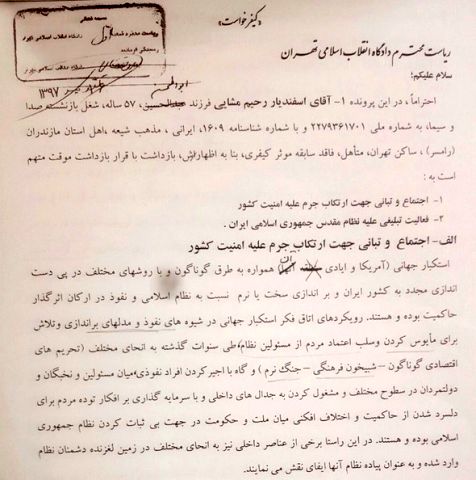 «کیفرخواست»
ریاست محترم دادگاه انقلاب اسلامی تهران
سلام علیکم؛
۱۳۹۷
احتراماً، در این پرونده ۱- آقای اسفندیار رحیم مشایی فرزند عبدالحسین، ۵۷ ساله، شغل بازنشسته صدا
و سیما، به شماره ملی ۲۲۷۹۳۶۱۷۰۱ و با شماره شناسنامه ۱۶۰۹، ایرانی ، مذهب شیعه ،اهل استان مازندران
(رامسر) ، ساکن تهران، متأهل، فاقد سابقه موثر کیفری، بنا به اظهارش، بازداشت با قرار بازداشت موقت متهم
است به :
۱- اجتماع و تبانی جهت ارتکاب جرم علیه امنیت کشور
۲- فعالیت تبلیغی علیه نظام مقدس جمهوری اسلامی ایران .
الف- اجتماع و تبانی جهت ارتکاب جرم علیه امنیت کشور
استکبار جهانی (آمریکا و ایادی آنها) همواره به طرق گوناگون و با روشهای مختلف در پی دست
اندازی مجدد به کشور ایران و بر اندازی سخت یا نرم نسبت به نظام اسلامی و نفوذ در ارکان اثرگذار
حاکمیت بوده و هستند. رویکردهای اتاق فکر استکبار جهانی در شیوه های نفوذ و مدلهای براندازی و تلاش
برای مأیوس کردن وسلب اعتماد مردم از مسئولین نظام،طی سنوات گذشته به انحای مختلف (تحریم های
اقتصادی گوناگون – شبیخون فرهنگی – جنگ نرم ) و گاه با اجیر کردن افراد نفوذی،میان مسئولین و نخبگان و
دولتمردان در سطوح مختلف و مشغول کردن به جدال های داخلی و با سرمایه گذاری بر افکار توده مردم برای
دلسرد شدن از حاکمیت و اختلاف افکنی میان ملت و حکومت در جهت بی ثبات کردن نظام جمهوری
اسلامی بوده و هستند. در این راستا برخی از عناصر داخلی نیز به انحای مختلف در زمین لغزنده دشمنان نظام
وارد شده و به عنوان پیاده نظام آنها ایفای نقش می نمایند.